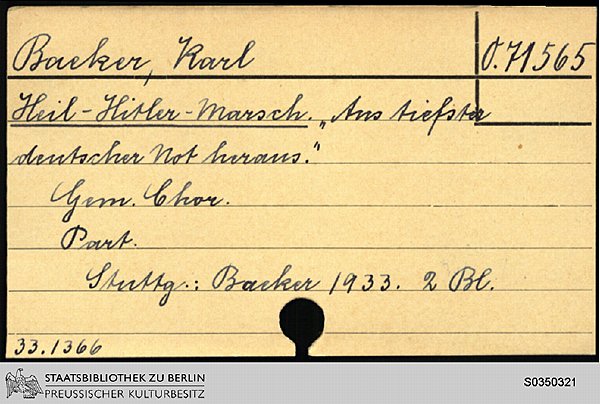 Backer, Karl
O.71565
Heil-Hitler-Marsch. „Aus tiefster
deutscher Not heraus.“
Gem. Chor.
Part.
Stuttg.: Backer 1933. 2 Bl.
33.1366
STAATSBIBLIOTHEK ZU BERLIN
PREUSSISCHER KULTURBESITZ
S0350321